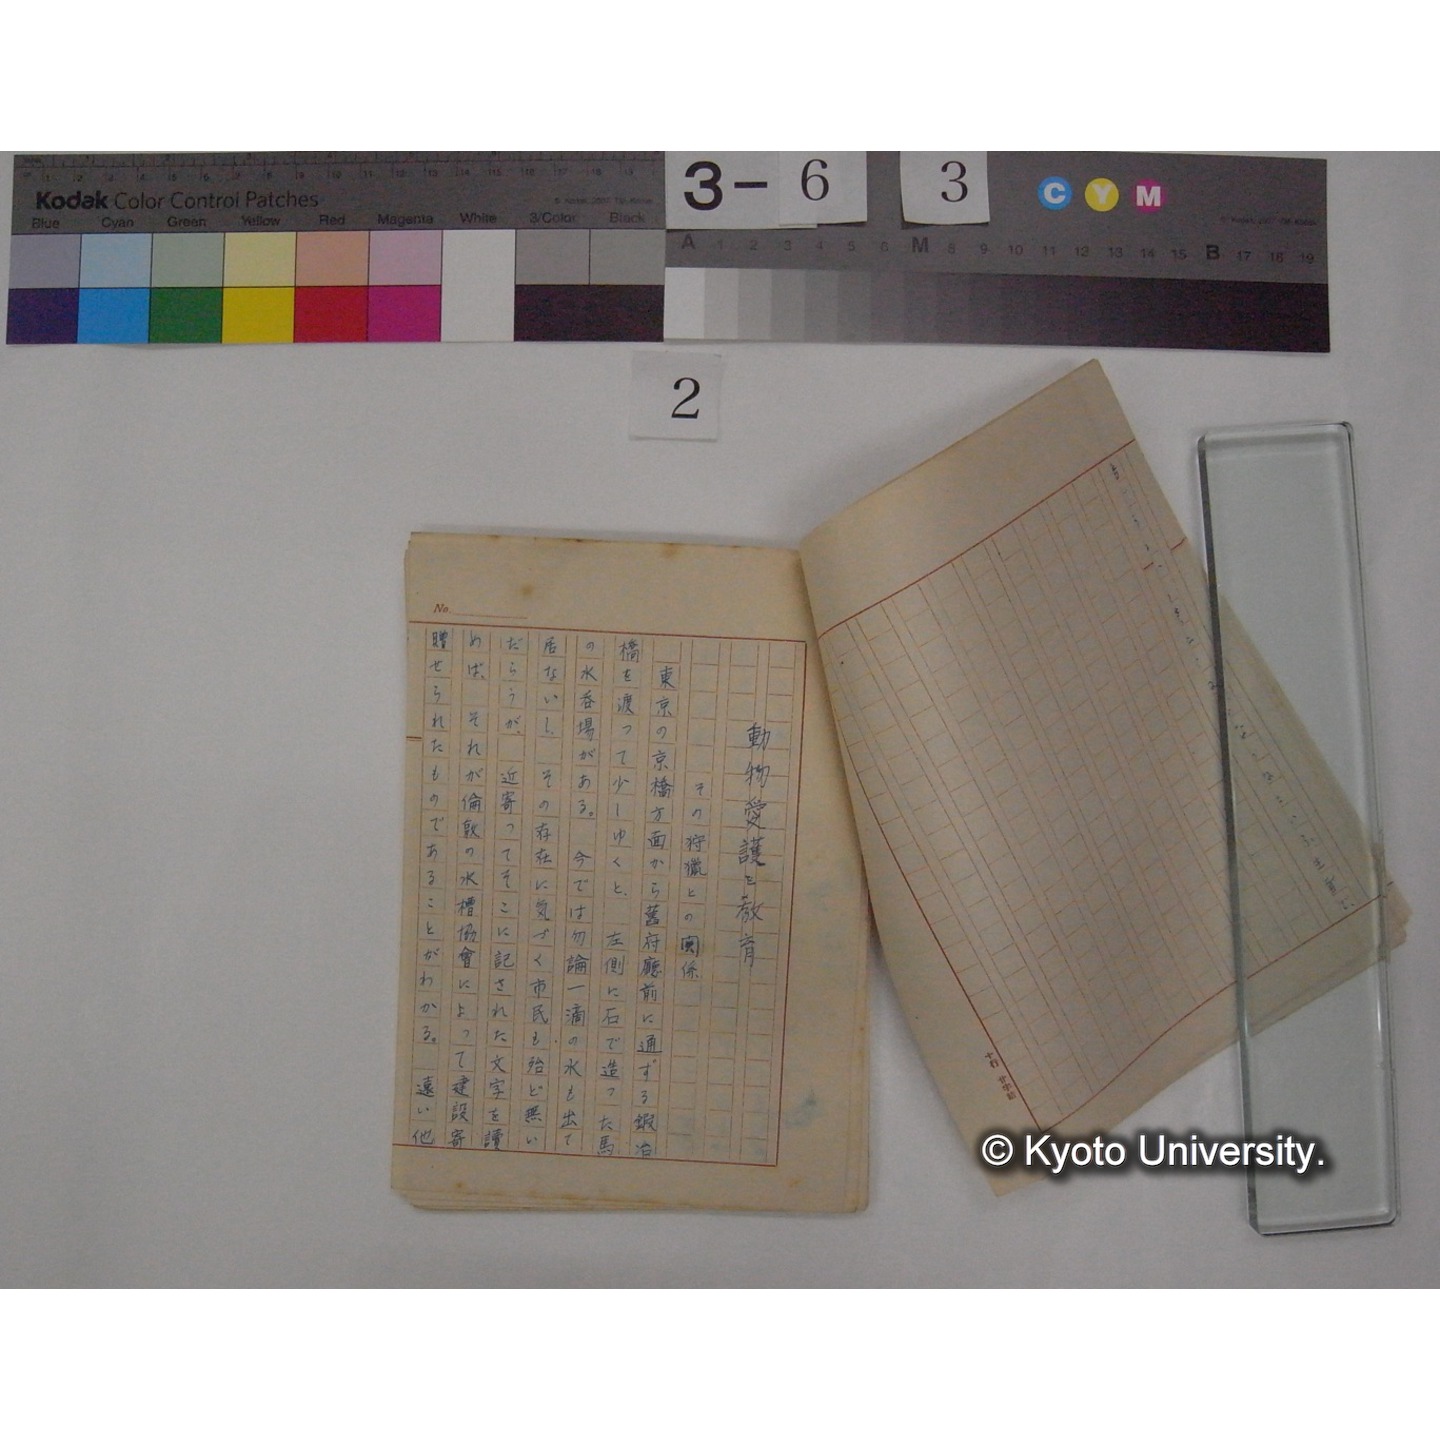 Kodak Color Control Patches
Blue Cyan Green Yellow Red Magenta White 3/Color Black
3-6 3
C Y M
A 1 2 3 4 5 6 M 8 9 10 11 12 13 14 15 B 17 18 19
2
No.
動物愛護と教育
その狩獵との関係
東京の京橋方面から舊府廳前に通ずる鍛冶
橋を渡つて少しゆくと、左側に石で造つた馬
の水呑場がある。今では勿論一滴の水も出て
居ないし、その存在に気づく市民も殆ど無い
だらうが、近寄つてそこに記された文字を讀
めば、それが倫敦の水槽協會によつて建設寄
贈せられたものであることがわかる。遠い他
十行 廿字詰
© Kyoto University.